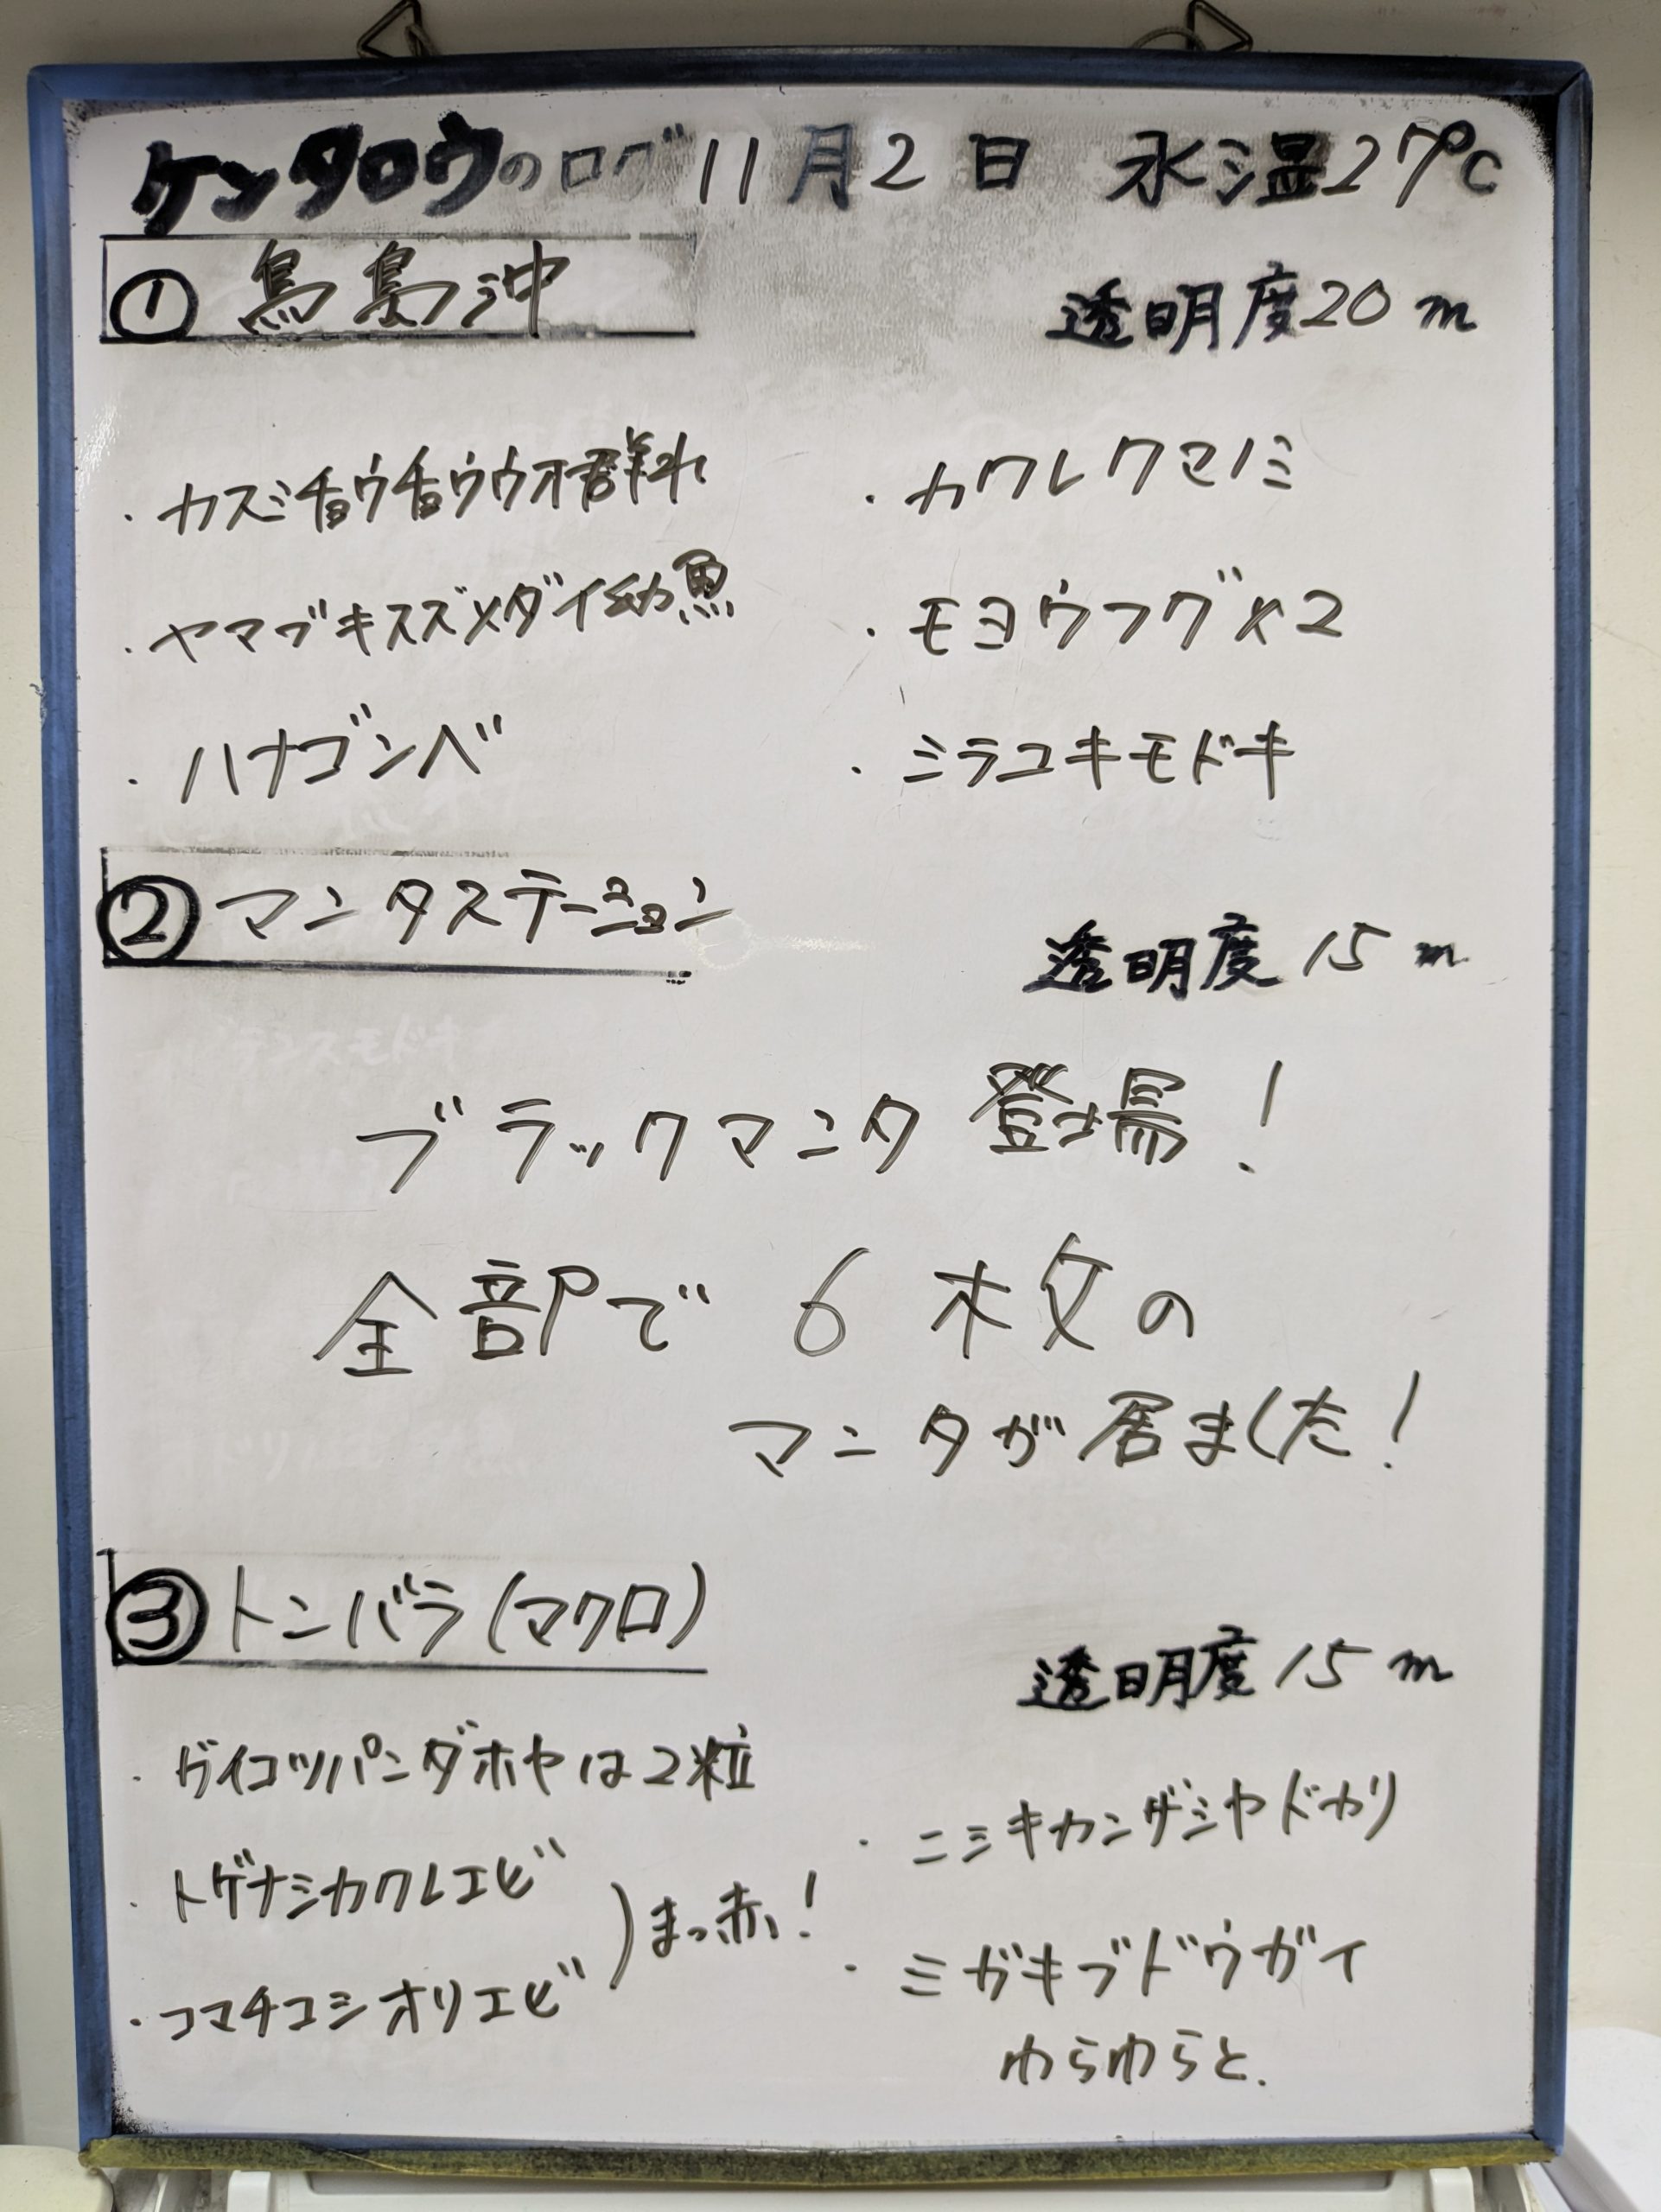 ケンタロウのログ 11月2日 水温27℃
① 鳥島沖
透明度20m
・カスミチョウチョウウオ群れ
・ヤマブキスズメダイ幼魚
・ハナゴンベ
・カクレクマノミ
・モヨウフグ×2
・ミラユキモドキ
② マンタステーション
透明度15m
ブラックマンタ登場！
全部で6枚の
マンタが居ました！
③ トンバラ(マクロ)
透明度15m
・ガイコツパンダホヤは2粒
・トゲナシカクレエビ
・コマチコシオリエビ
)まっ赤！
・ニシキカンザシヤドカリ
・ミガキブドウガイ
わらわらと.